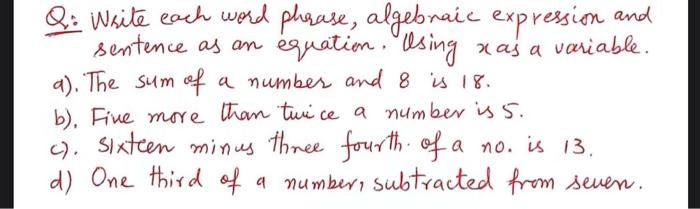 Q: Write each word phrase, algebraic expression and
sentence as an equation. Using x as a variable.
a). The sum of a number and 8 is 18.
b). Five more than twice a number is 5.
c). Sixteen minus three fourth of a no. is 13.
d) One third of a number, subtracted from seven.